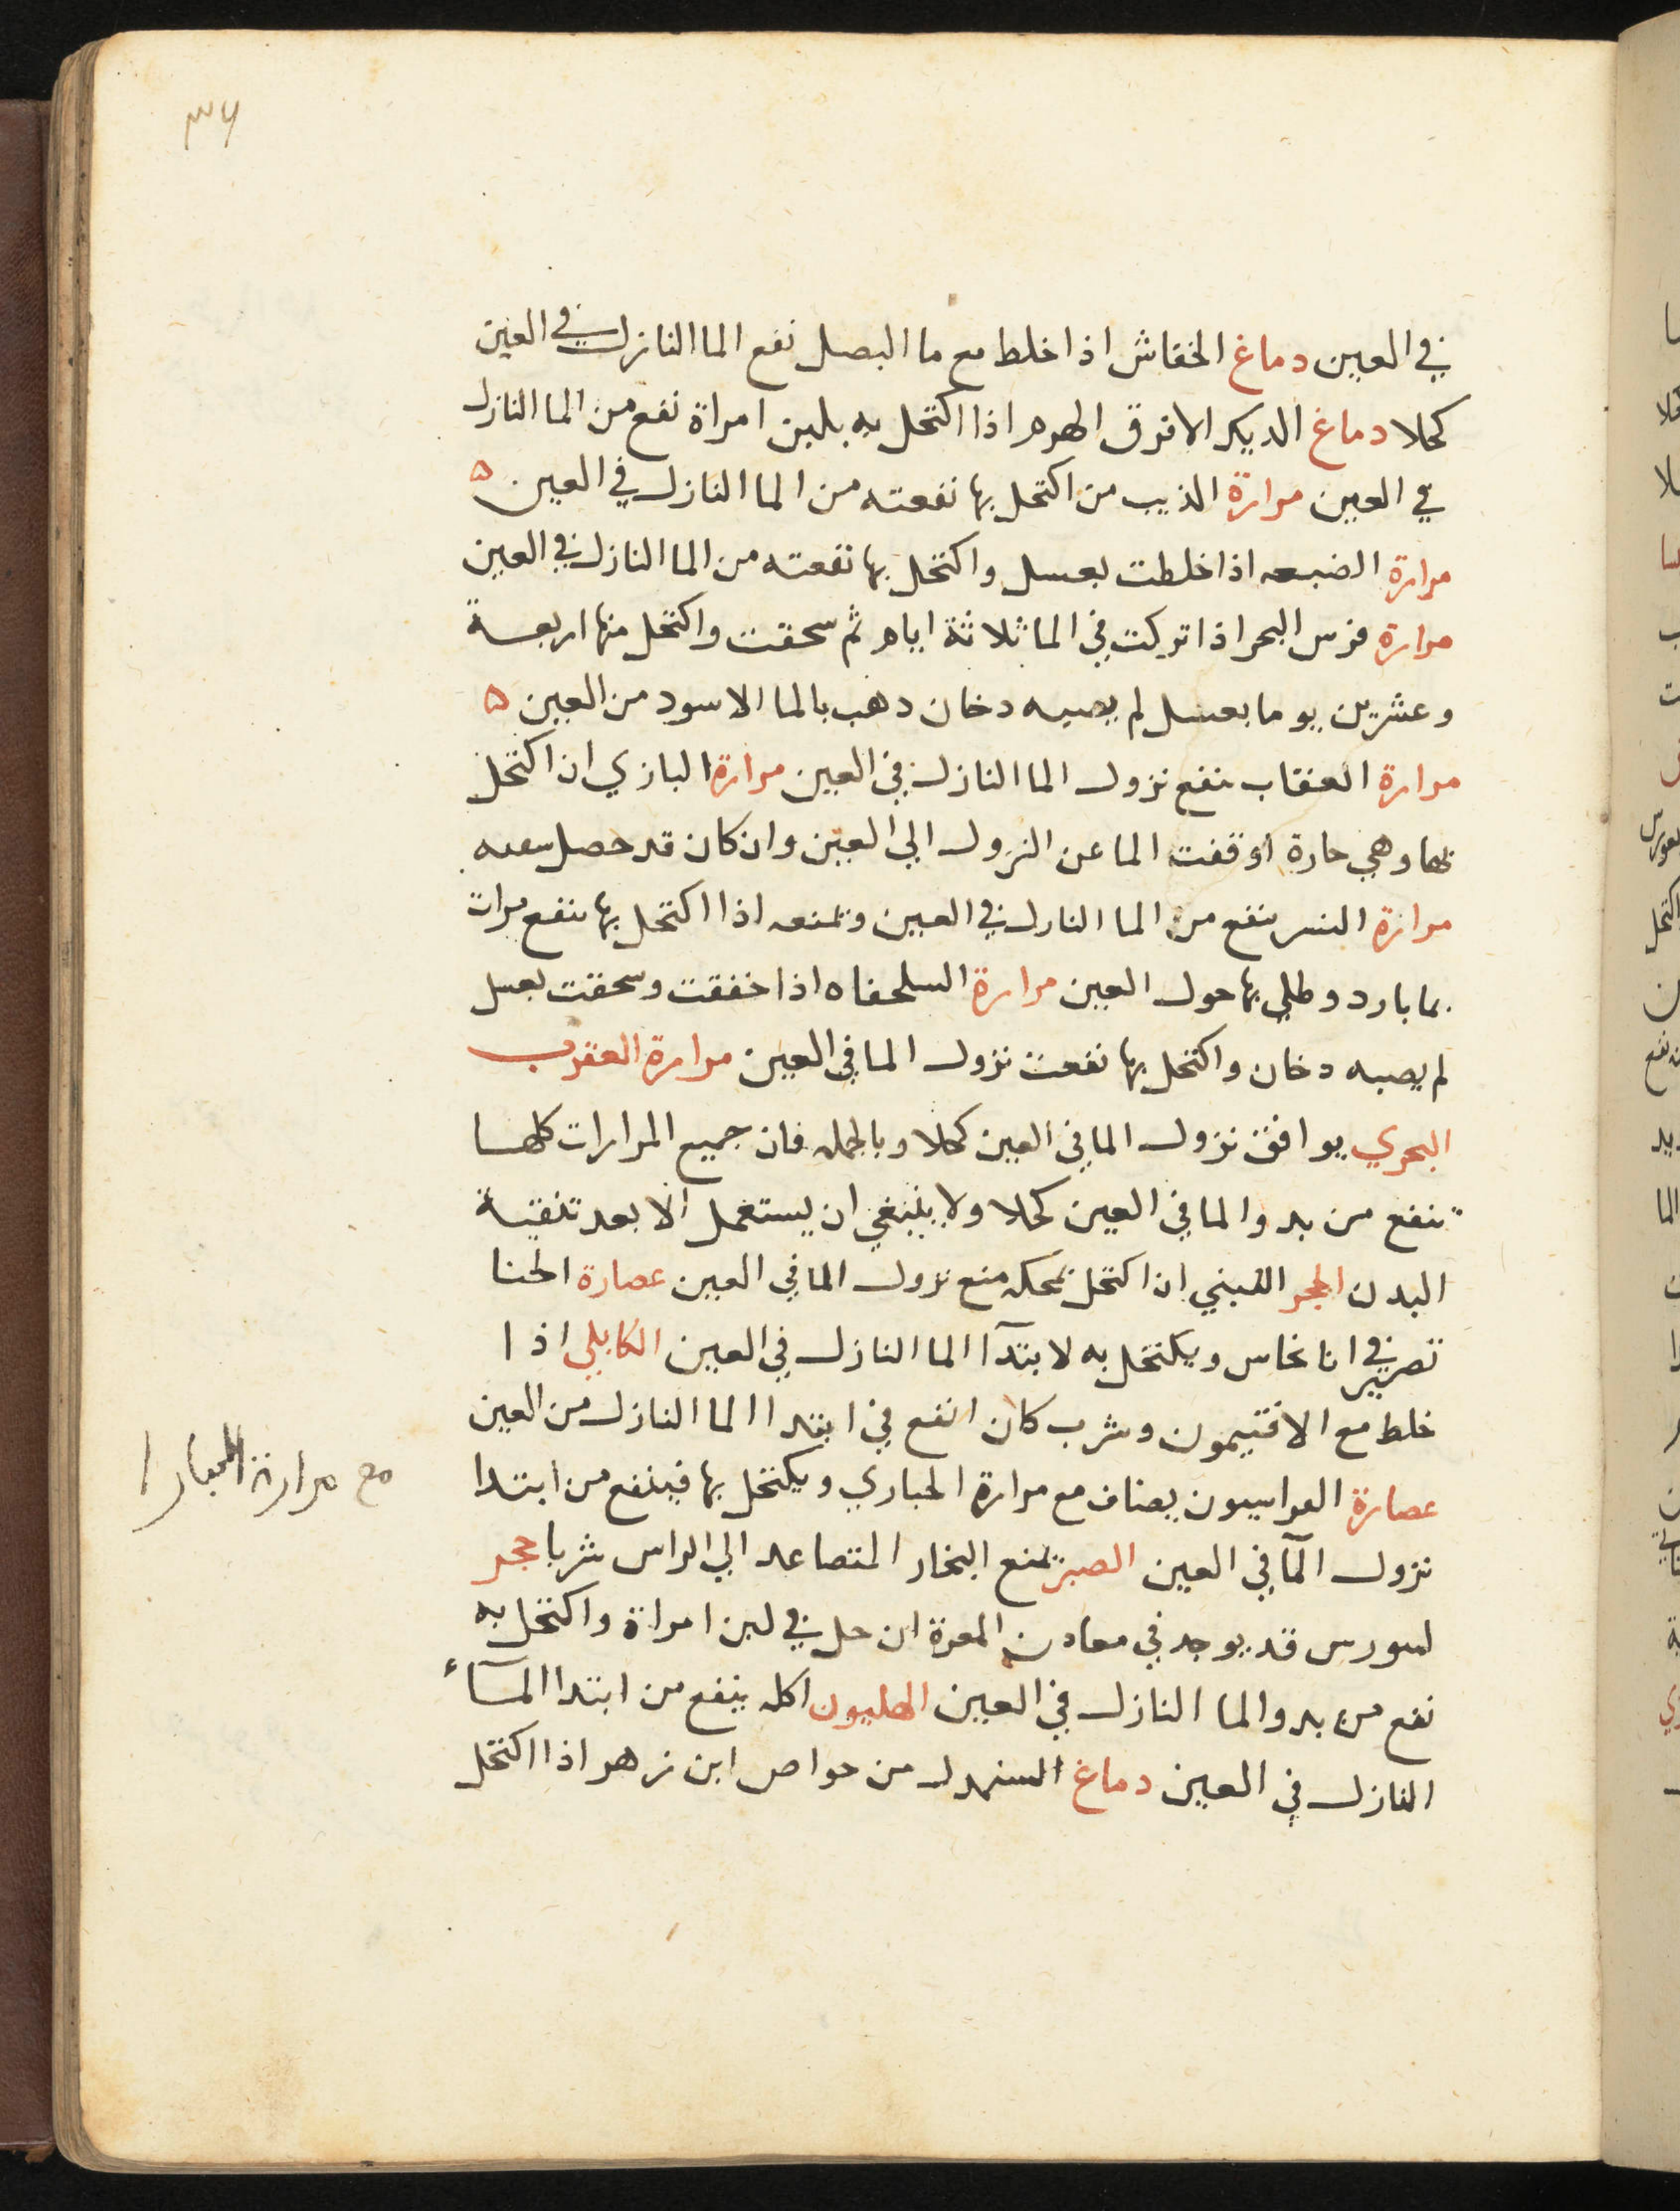 ٣٦
في العين دماغ الخفاش اذا خلط مع ما البصل نفع الما النازل في العين
كحلا دماغ الديك الافرق الهرم اذا اكتحل به بلبن امراة نفع من الما النازل
في العين مرارة الذيب من اكتحل بها نفعته من الما النازل في العين ه
مرارة الضبعه اذا خلطت بعسل واكتحل بها نفعته من الما النازل في العين
مرارة فرس البحر اذا تركت في الما ثلاثة ايام ثم سحقت واكتحل منها اربعة
وعشرين يوما بعسل لم يصيبه دخان دهب بالما الاسود من العين ه
مرارة العقاب تنفع نزول الما النازل في العين مرارة البازي ان اكتحل
بها وهي حارة اوقفت الما عن النزول الي العين وان كان قد حصل
مرارة النسر ينفع من الما النازل في العين وتمنعه اذا اكتحل بها ينفع مرات
بما بارد وطلي بها حول العين مرارة السلحفاه اذا خففت وسحقت بعسل
لم يصبه دخان واكتحل بها نفعت نزول الما في العين مرارة العقرب
البحري يوافق نزول الما في العين كحلا وبالجمله فان جميع المرارات كلها
تنفع من بدو الما في العين كحلا ولا ينبغي ان يستعمل الا بعد تنقية
البدن الحجر القبني ان اكتحل بمحكه منع نزول الما في العين عصارة الحنا
تصير في انا نحاس ويكتحل به لابتدآ الما النازل في العين الكابلي اذا
خلط مع الافتيمون وشرب كان انفع في ابتدا الما النازل من العين
عصارة الفراسيون يضاف مع مرارة الحباري ويكتحل بها فينفع من ابتدا
مع مرارة الحبارا
نزول المآ في العين الصبر تمنع البخار المتصاعد الي الراس شربا حجر
قد يوجد في معادن المغرة ان حل في لبن امراة واكتحل به
نفع من بدو الما النازل في العين الهليون اكله ينفع من ابتدا المآء
النازل في العين دماغ من خواص ابن زهر اذا اكتحل